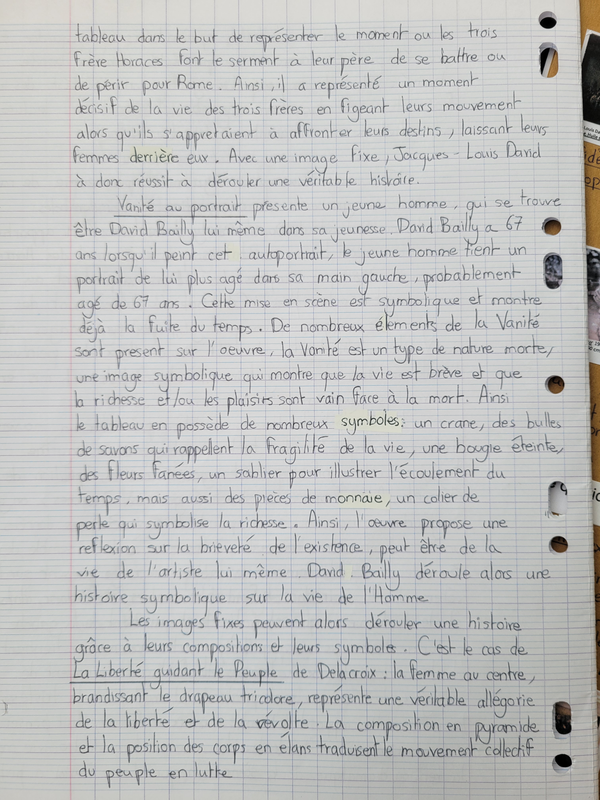 tableau dans le but de représenter le moment ou les trois
frère Horaces font le serment à leur père de se battre ou
de périr pour Rome. Ainsi, il a représenté un moment
décisif de la vie des trois frères en figeant leurs mouvement
alors qu'ils s'appretaient à affronter leurs destins, laissant leurs
femmes derrière eux. Avec une image fixe, Jacques-Louis David
à donc réussit à dérouler une véritable histoire.
Vanité au portrait présente un jeune homme, qui se trouve
être David Bailly lui même dans sa jeunesse. David Bailly a 67
ans lorsqu'il peint cet autoportrait, le jeune homme tient un
portrait de lui plus agé dans sa main gauche, probablement
agé de 67 ans. Cette mise en scène est symbolique et montre
déjà la fuite du temps. De nombreux élements de la Vanité
sont present sur l'oeuvre, la Vanité est un type de nature morte,
une image symbolique qui montre que la vie est brève et que
la richesse et/ou les plaisits sont vain face à la mort. Ainsi
le tableau en possède de nombreux symboles: un crane, des bulles
de savons qui rappelent la fragilité de la vie, une bougie éteinte,
des fleurs fanées, un sablier pour illustrer l'écoulement du
temps, mais aussi des pièces de monnaie, un colier de
perle qui symbolise la richesse. Ainsi, l'oeuvre propose une
reflexion sur la brieveté de l'existence, peut être de la
vie de l'artiste lui même. David Bailly déroule alors une
histoire symbolique sur la vie de l'Homme
Les images fixes peuvent alors dérouler une histoire
grâce à leurs compositions et leurs symboles. C'est le cas de
La Liberté guidant le Peuple de Delacroix : la femme au centre,
brandissant le drapeau tricolore, représente une véritable allégorie
de la liberté et de la révolte. La composition en pyramide
et la position des corps en élans traduisent le mouvement collectif
du peuple en lutte